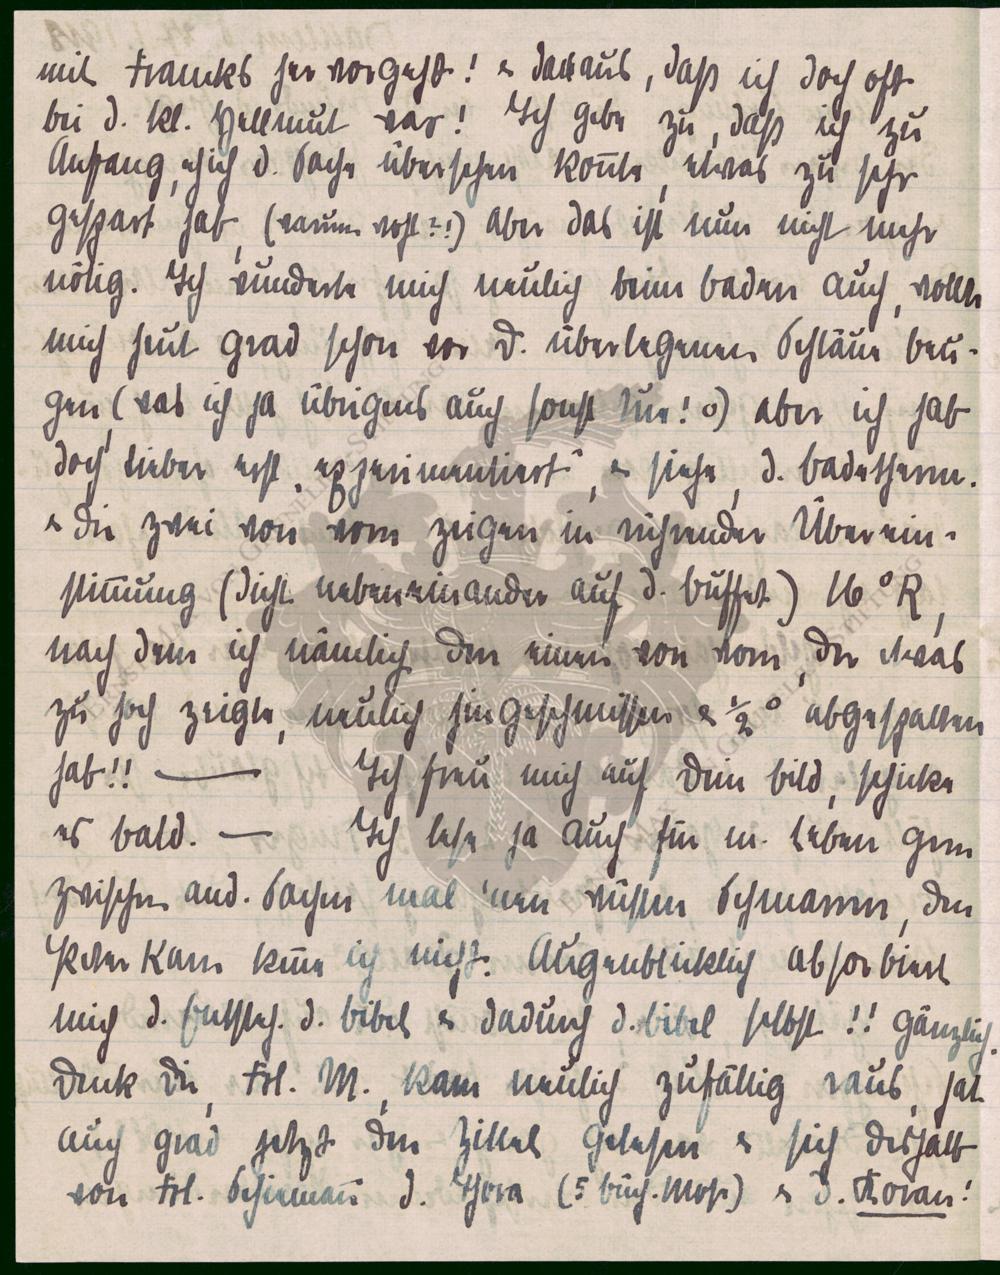 mit Francks hervorgeht! & daraus, daß ich doch oft
bei d. kl. Hellmut war! Ich gebe zu, daß ich zu
Anfang, eh ich d. Sache übersehen kon̄te, etwas zu sehr
gespart hab, (warum wohl?!) aber das ist nun nicht mehr
nötig. Ich wunderte mich neulich beim baden auch, wollte
mich heut grad schon vor d. überlegenen Schläue beu-
gen (was ich ja übrigens auch sonst tue! o) aber ich hab
doch lieber erst „experimentiert“, & siehe, d. badetherm.
& die zwei von vorn zeigen in rührender Überein-
stim̄ung (dicht nebeneinander auf d. buffet) 16°R,
nach dem ich nämlich den einen von vorn, der etwas
zu hoch zeigte, neulich hingeschmissen & ½° abgespalten
hab!! — Ich freu mich auf dein bild, schicke
es bald. — Ich lese ja auch für m. Leben gern
zwischen and. Sachen mal 'nen wüsten Schmarrn, den
Kam ken̄e ich nicht. Augenblicklich absorbiert
mich d. Entsteh. d. bibel & dadurch d. bibel selbst!! gänzlich.
Denk dir, Frl. M., kam neulich zufällig raus, hat
auch grad jetzt den Zittel gelesen & sich deshalb
von Frl. Schieman̄ d. Thora (5 büch. Mose) & d. Koran!